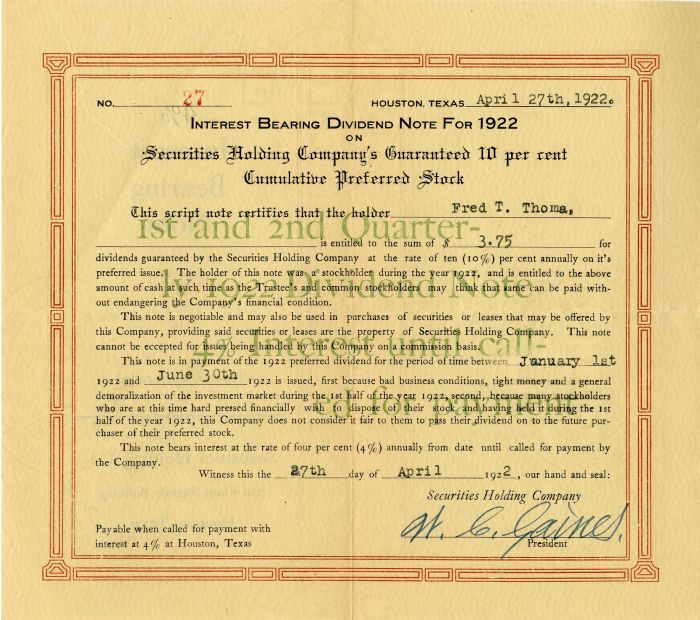 NO. 27 HOUSTON, TEXAS April 27th, 1922.
INTEREST BEARING DIVIDEND NOTE FOR 1922
ON
Securities Holding Company's Guaranteed 10 per cent
Cumulative Preferred Stock
This script note certifies that the holder Fred T. Thoma,
1st and 2nd Quarter-
is entitled to the sum of $ 3.75 for
dividends guaranteed by the Securities Holding Company at the rate of ten (10%) per cent annually on it's
preferred issue. The holder of this note was a stockholder during the year 1922, and is entitled to the above
ly 1922 Dividend Note
amount of cash at such time as the Trustee's and common stockholders may think that same can be paid with-
out endangering the Company's financial condition.
This note is negotiable and may also be used in purchases of securities or leases that may be offered by
this Company, providing said securities or leases are the property of Securities Holding Company. This note
4% Interest until call-
cannot be accepted for issues being handled by this Company on a commission basis.
This note is in payment of the 1922 preferred dividend for the period of time between January 1st
1922 and June 30th 1922 is issued, first because bad business conditions, tight money and a general
demoralization of the investment market during the 1st half of the year 1922, second, because many stockholders
ed for payment
who are at this time hard pressed financially wish to dispose of their stock and having held it during the 1st
half of the year 1922, this Company does not consider it fair to them to pass their dividend on to the future pur-
chaser of their preferred stock.
This note bears interest at the rate of four per cent (4%) annually from date until called for payment by
the Company.
Witness this the 27th day of April 1922, our hand and seal:
Securities Holding Company
W. C. Gaines.
President
Payable when called for payment with
interest at 4% at Houston, Texas